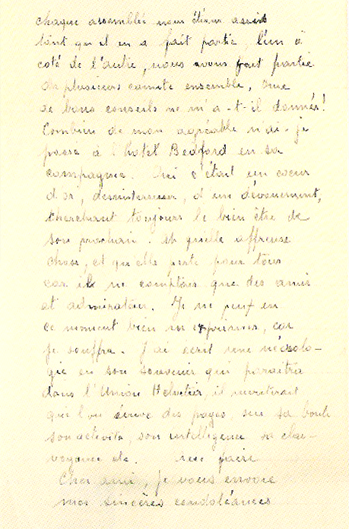 chaque assemblée nous étions assis
tant qu'il en a fait partie, l'un à
coté de l'autre, nous avons fait partie
de plusieurs comité ensemble, Que
de bons conseils ne m'a-t-il donnés!
Combien de mon agréable n'ai-je
passé à l'hotel Bedford en sa
compagnie. lui c'était un coeur
d'or, desinteresseur, d'un dévouement,
cherchant toujours le bien être de
son prochain. et quelle affreuse
chose, et quelle perte pour tous
car il ne comptait que des amis
et admirateurs. Je ne peux en
ce moment bien m'exprimer, car
je souffre. J'ai écrit une nécrolo-
gie en son souvenir qui paraitra
dans l'Union Helvetia, il meriterait
que l'on écrive des pages sur sa bonté
son activité, son intelligence sa clair-
voyance etc. faire
Cher ami, je vous envoie
mes sincères condoléances